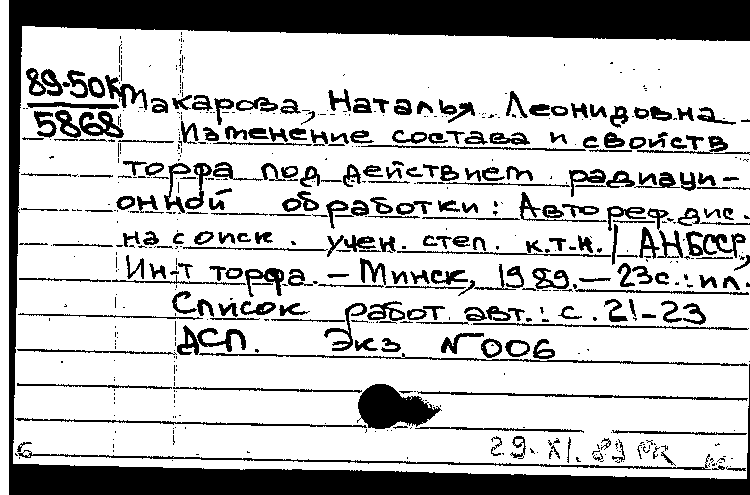 89-50К
5868
Макарова, Наталья Леонидовна
Изменение состава и свойств
торфа под действием радиаци-
онной обработки: Автореф.дис.
на соиск. учен. степ. к.т.н. / АН БССР,
Ин-т торфа. — Минск, 1989. — 23с.: ил.
Список работ авт.: с. 21-23
ДСП. Экз. N 006
29. XI. 89
6